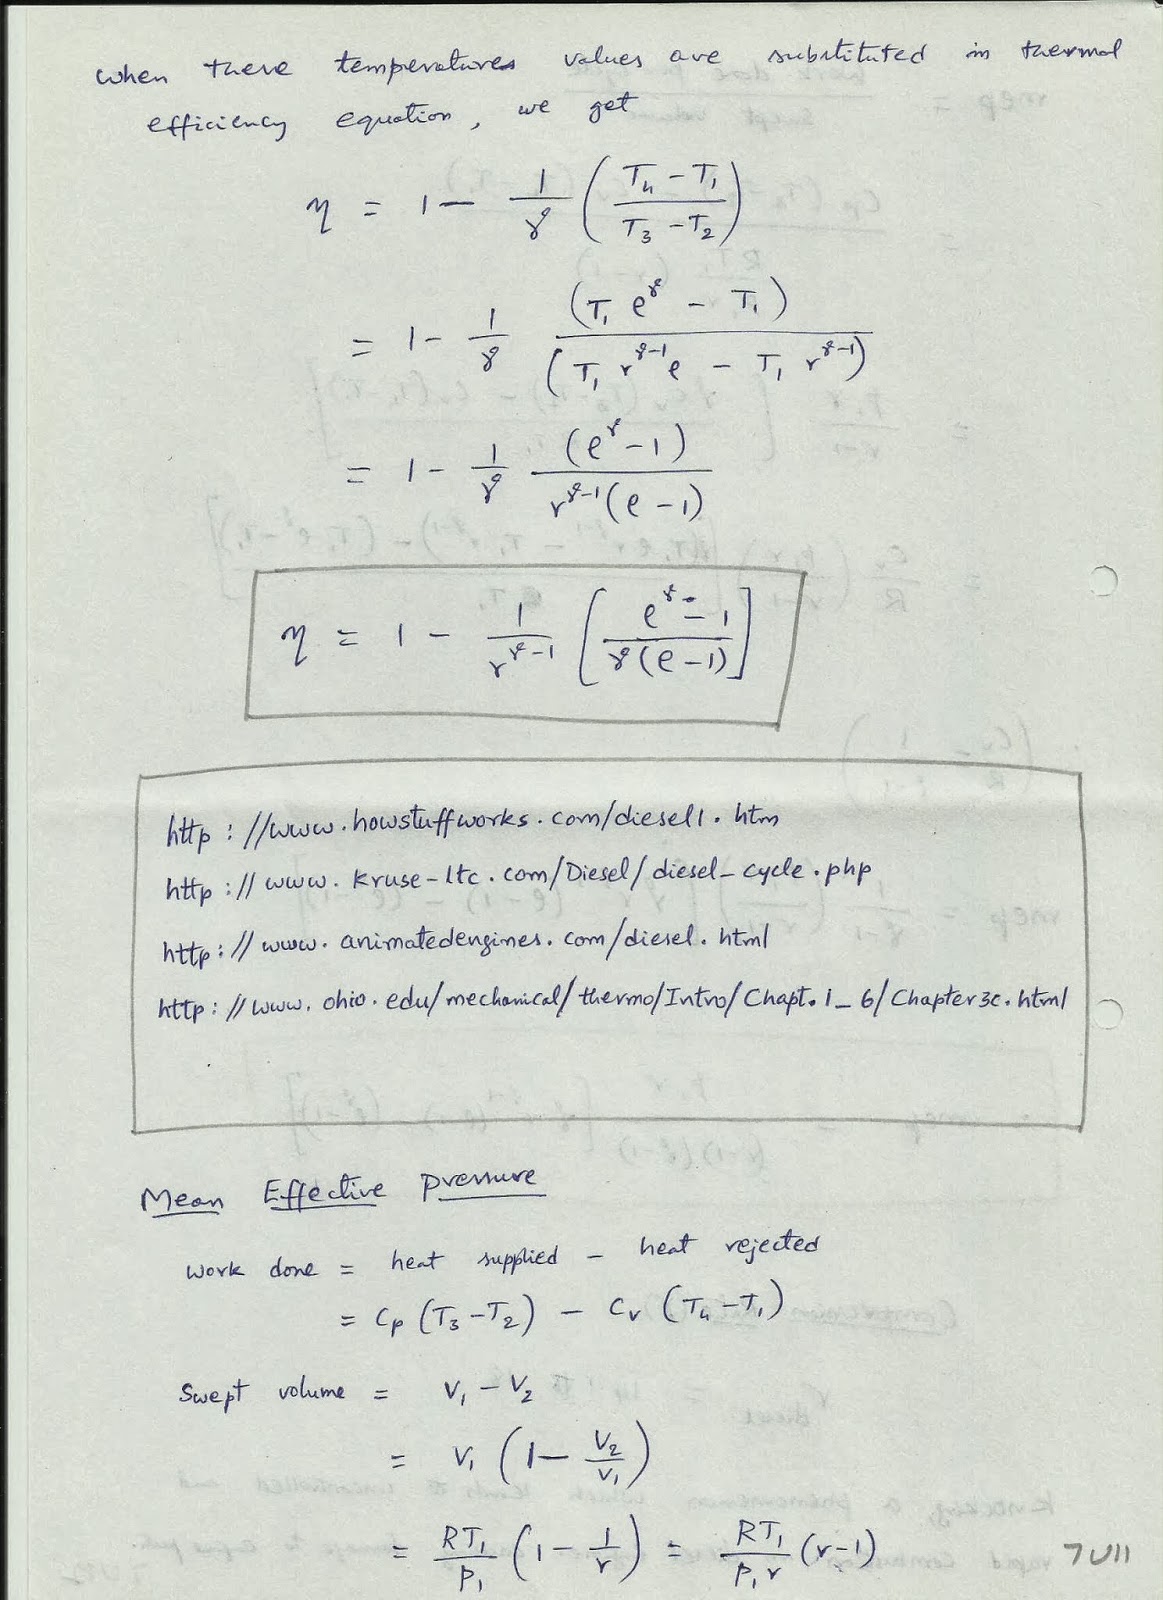 when these temperatures values are substituted in thermal
efficiency equation, we get
η = 1 - 1/γ ( (T4 - T1) / (T3 - T2) )
= 1 - 1/γ (T1 ρ^γ - T1) / (T1 r^(γ-1) ρ - T1 r^(γ-1))
= 1 - 1/γ (ρ^γ - 1) / (r^(γ-1) (ρ - 1))
η = 1 - 1/r^(γ-1) [ (ρ^γ - 1) / (γ(ρ - 1)) ]
http://www.howstuffworks.com/diesel1.htm
http://www.kruse-ltc.com/Diesel/diesel_cycle.php
http://www.animatedengines.com/diesel.html
http://www.ohio.edu/mechanical/thermo/Intro/Chapt.1_6/Chapter3c.html
Mean Effective Pressure
work done = heat supplied - heat rejected
= Cp (T3 - T2) - Cv (T4 - T1)
Swept volume = V1 - V2
= V1 (1 - V2/V1)
= RT1/P1 (1 - 1/r) = RT1/P1r (r-1)
7U11